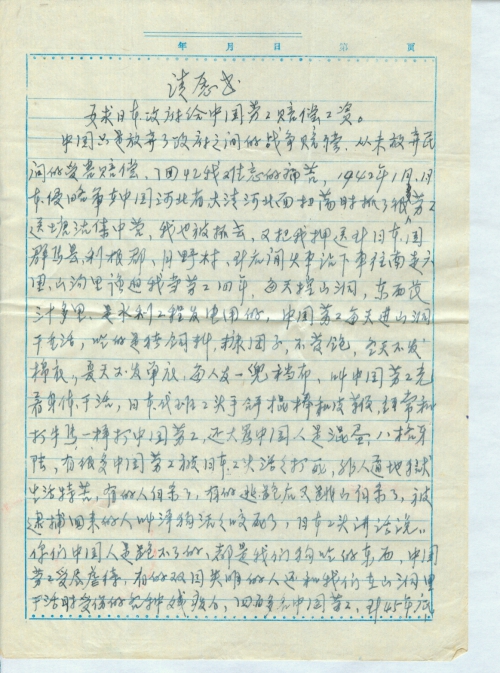 年 月 日 第 页
请愿书
要求日本政府给中国劳工赔偿工资。
中国只是放弃了政府之间的战争赔偿,从未放弃民
间的受害赔偿,回忆我难忘的痛苦,1942年1月1日
本侵略军在中国河北省大清河北面扫荡时抓了很劳工
送塘沽集中营,我也被抓去,又把我押送到日本国
群马县利根郡,月野村,到后闲火车站下车往南走六
里山沟里强迫我当劳工四年,每天挖山洞,东西长
三十多里,是水利工程发电用的,中国劳工每天进山洞
干重活,吃的是猪饲料,糠团子,不管饱,冬天不发
棉衣,夏天不发单衣,每人发一兜裆布,叫中国劳工光
着身体干活,日本代班工头手拿棍棒和皮鞭,经常和
打牛马一样打中国劳工,还大骂中国人是混蛋,八格牙
陆,有很多中国劳工被日本工头活活打死,非人道地狱
生活特苦,有的人自杀了,有的逃跑后又跳山自杀了,被
逮捕回来的人叫洋狗活活咬死了,日本工头讲话说。
你们中国人是跑不了的,都是我们狗吃的东西,中国
劳工受尽虐待,有的双目失明的人还和我们在山洞里
干活时受伤的各种残疾人,四百多名中国劳工,到45年底